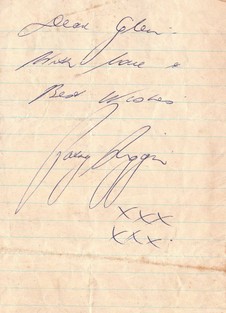 Dear Glen:
With love &
Best Wishes
xxx
xxx.